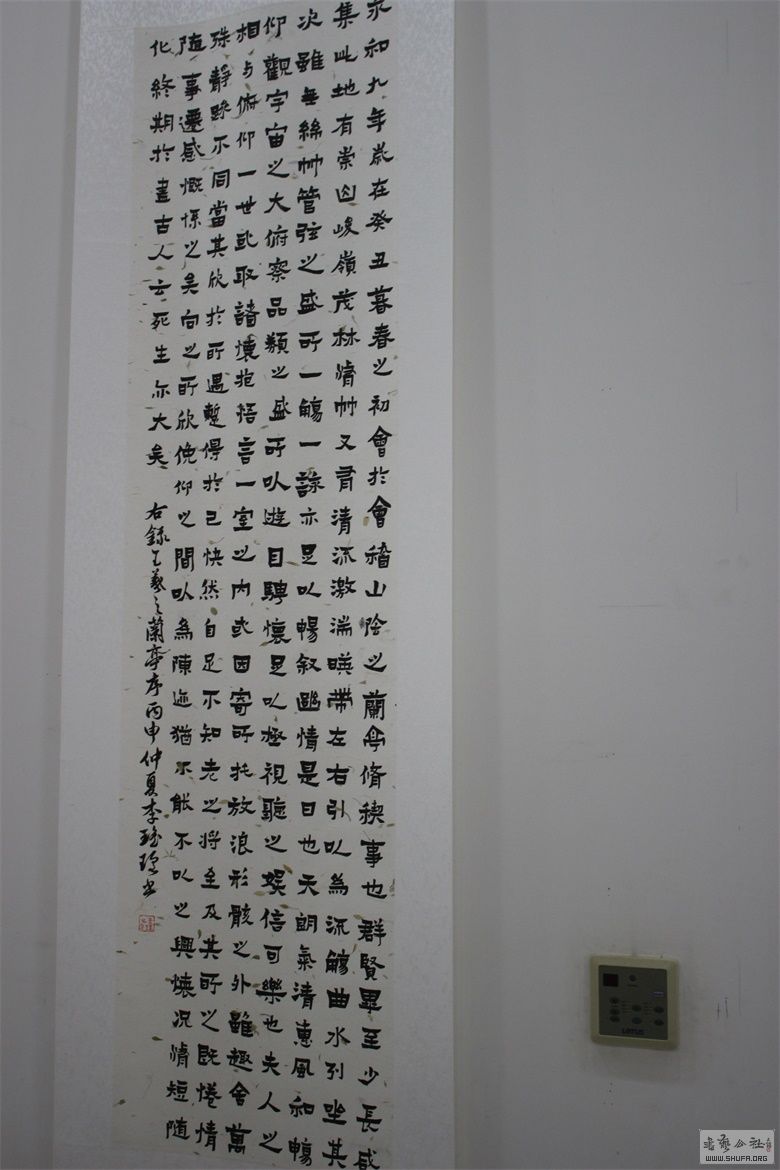 永和九年歲在癸丑暮春之初會於會稽山陰之蘭亭脩稧事也群賢畢至少長咸
集此地有崇山峻嶺茂林脩竹又有清流激湍暎帶左右引以為流觴曲水列坐其
次雖無絲竹管弦之盛所一觴一詠亦足以暢敘幽情是日也天朗氣清惠風和暢
仰觀宇宙之大俯察品類之盛所以遊目騁懷足以極視聽之娛信可樂也夫人之
相与俯仰一世或取諸懷抱悟言一室之內或因寄所托放浪形骸之外雖趣舍萬
殊靜躁不同當其欣於所遇暫得於己怏然自足不知老之將至及其所之既惓情
隨事遷感慨係之矣向之所欣俛仰之間以為陳迹猶不能不以之興懷況脩短隨
化終期於盡古人云死生亦大矣
右錄王羲之蘭亭序丙申仲夏李書
LOTUS
書藝公社
WWW.SHUFA.ORG